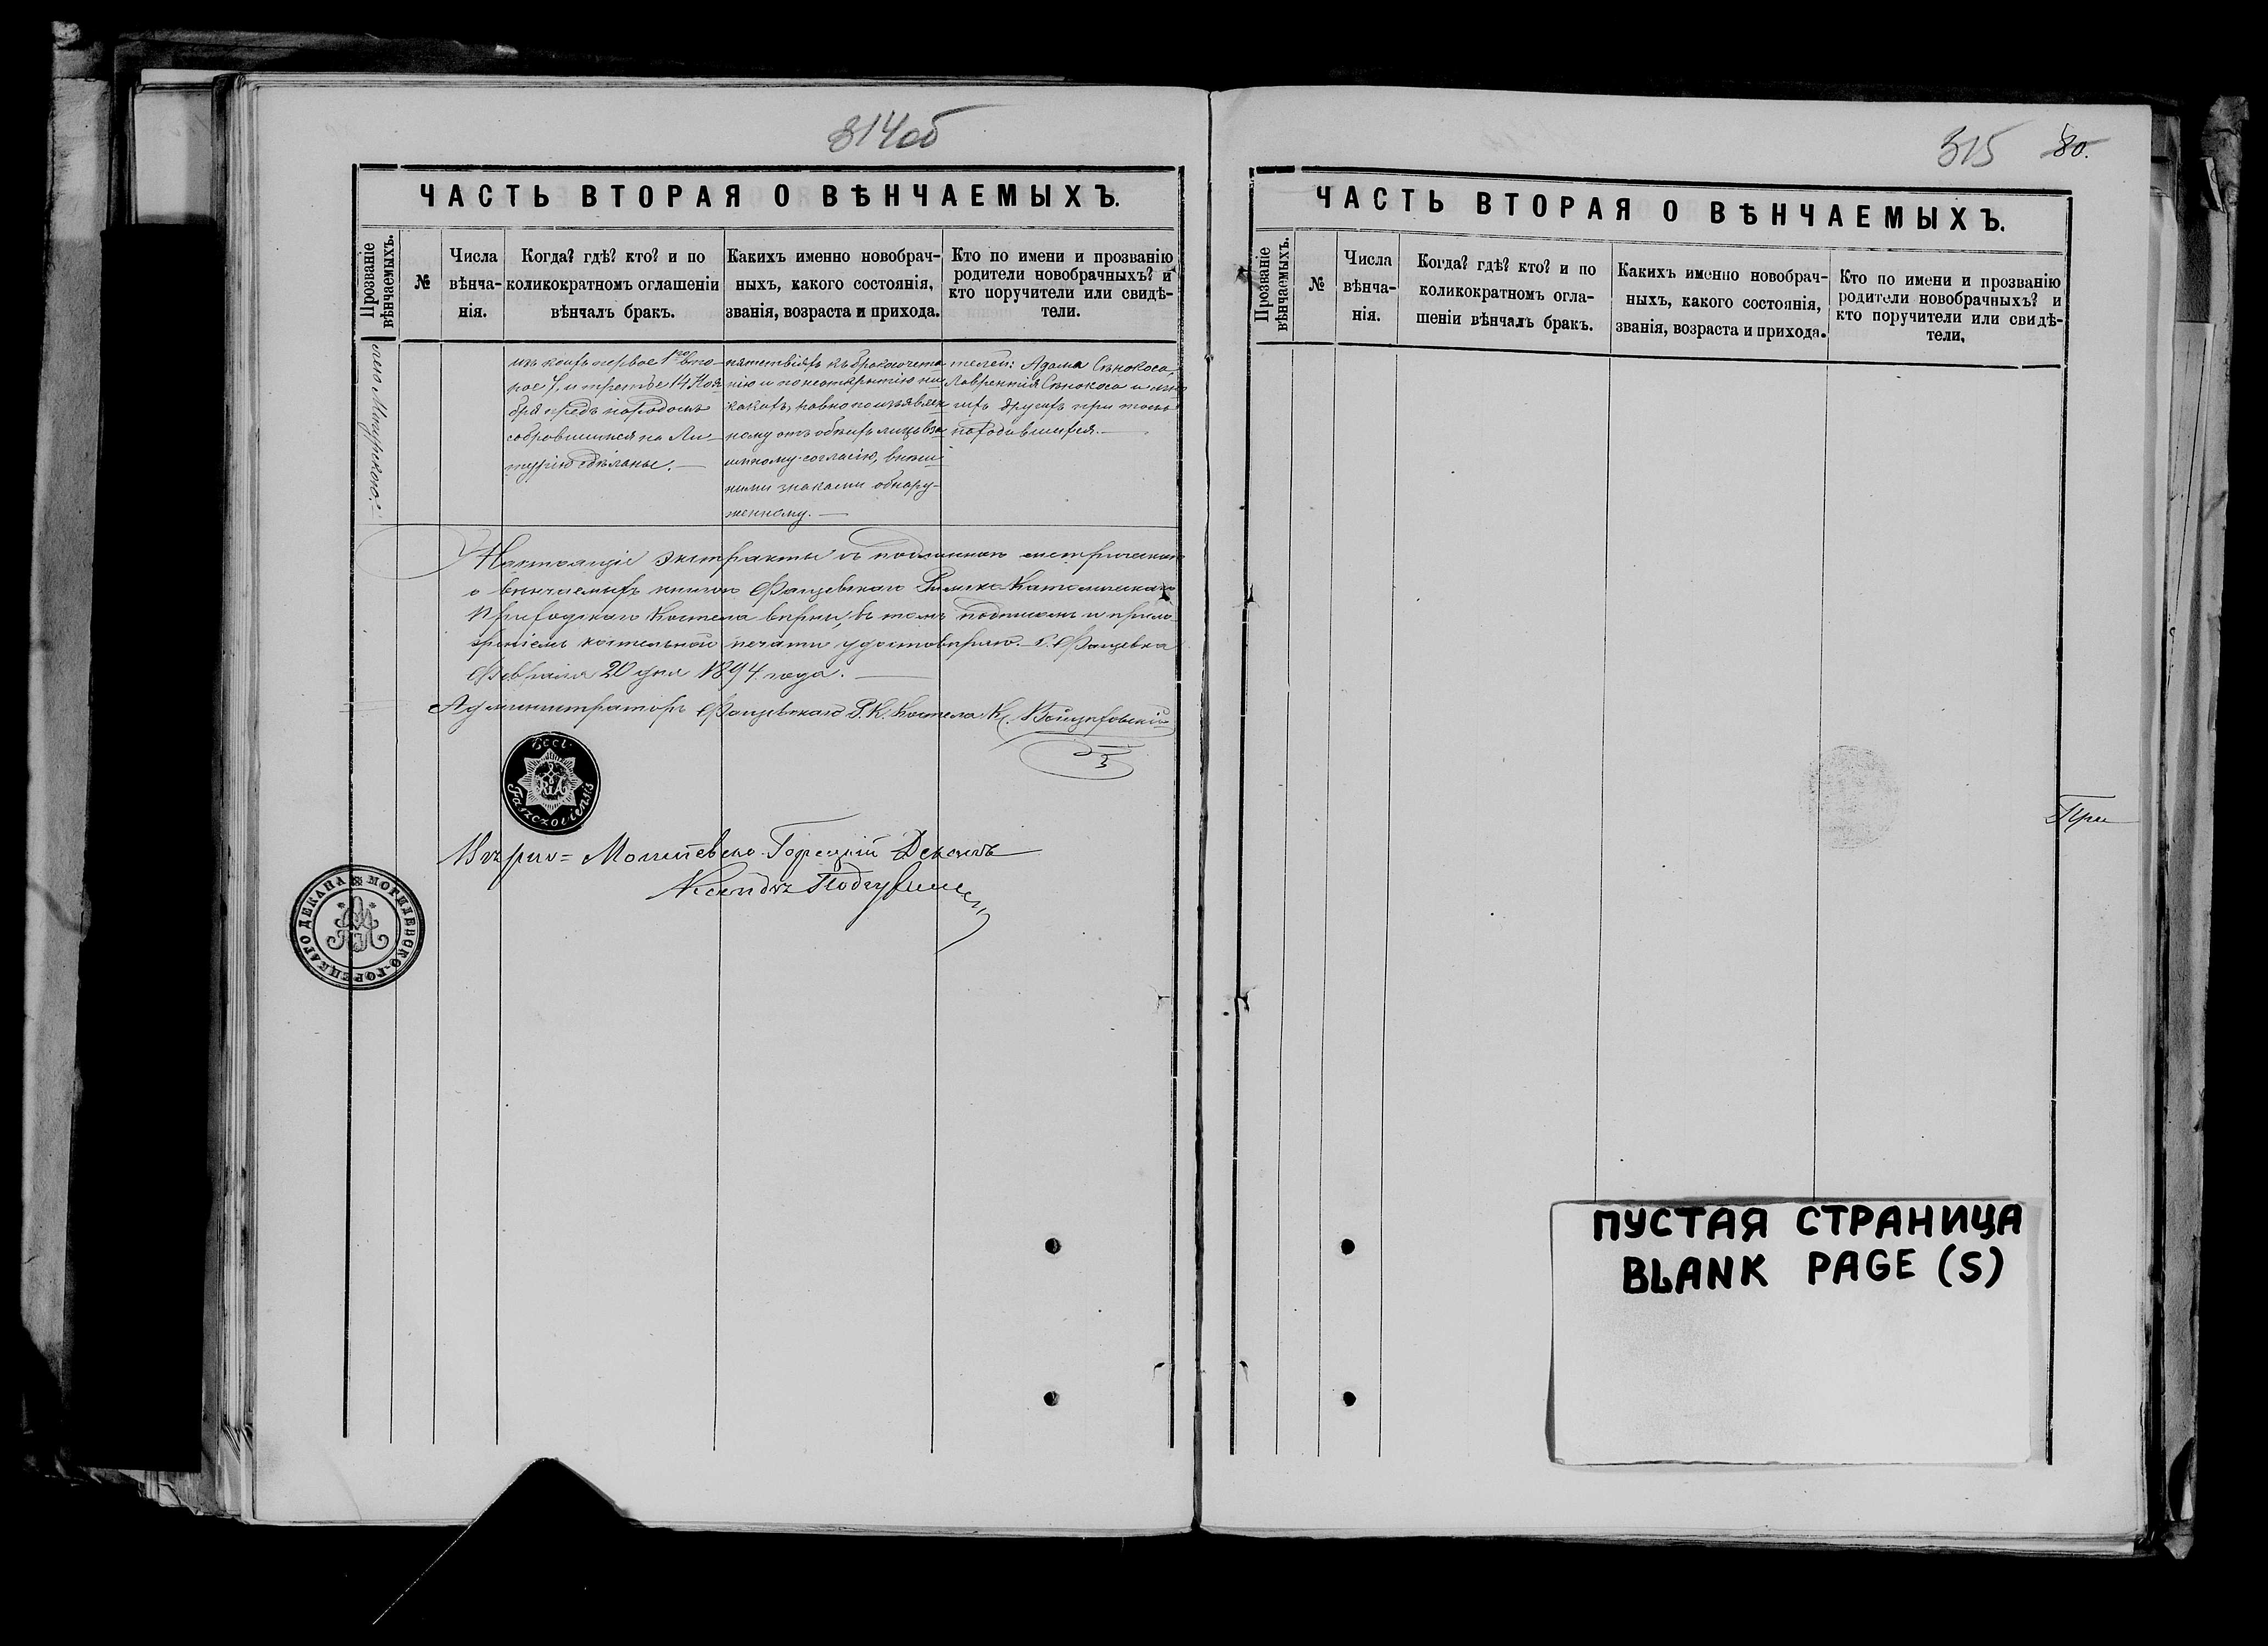 314об
ЧАСТЬ ВТОРАЯ О ВѢНЧАЕМЫХЪ.
Прозваніе вѣнчаемыхъ.
№
Числа
вѣнча-
нія.
Когда? гдѣ? кто? и по
коликократномъ оглашеніи
вѣнчалъ бракъ.
Какихъ именно новобрач-
ныхъ, какого состоянія,
званія, возраста и прихода.
Кто по имени и прозванію
родители новобрачныхъ? и
кто поручители или свидѣ-
тели.
изъ коихъ первое 1го вто-
рое 7, и третье 14 Ноя-
бря предъ народомъ
собровшимся на Ли-
тургію сдѣланы.
пятствіяхъ къ бракосочета
нію и по неоткрытію ни-
какихъ, равно по изъявлен
ному отъ обѣихъ лицъ вза
имному согласію, внѣш
ними знаками обнару-
женному.
телей: Адама Сѣнокоса,
Лаврентія Сѣнокоса и мно
гихъ другихъ при томъ
находившихся.
Настоящіе экстракты съ подлинною метрическою
о вѣнчаемыхъ книгою Фащевскаго Римско Католическаго
Приходскаго Костела вѣрны, въ томъ подписомъ и прило
женіемъ костельной печати удостовѣряю. С. Фащевка
Февраля 20 дня 1894 года.
Администраторъ Фащевскаго Р. К. Костела К.
Eccl.
Faszczoviensis
Вѣрно= Могилевско-Горецкій Деканъ
Ксендзъ
МОГИЛЕВСКО-ГОРЕЦКАГО ДЕКАНА
315 80.
ЧАСТЬ ВТОРАЯ О ВѢНЧАЕМЫХЪ.
Прозваніе вѣнчаемыхъ.
№
Числа
вѣнча-
нія.
Когда? гдѣ? кто? и по
коликократномъ огла-
шеніи вѣнчалъ бракъ.
Какихъ именно новобрач-
ныхъ, какого состоянія,
званія, возраста и прихода.
Кто по имени и прозванію
родители новобрачныхъ? и
кто поручители или свидѣ-
тели.
При
ПУСТАЯ СТРАНИЦА
BLANK PAGE (S)